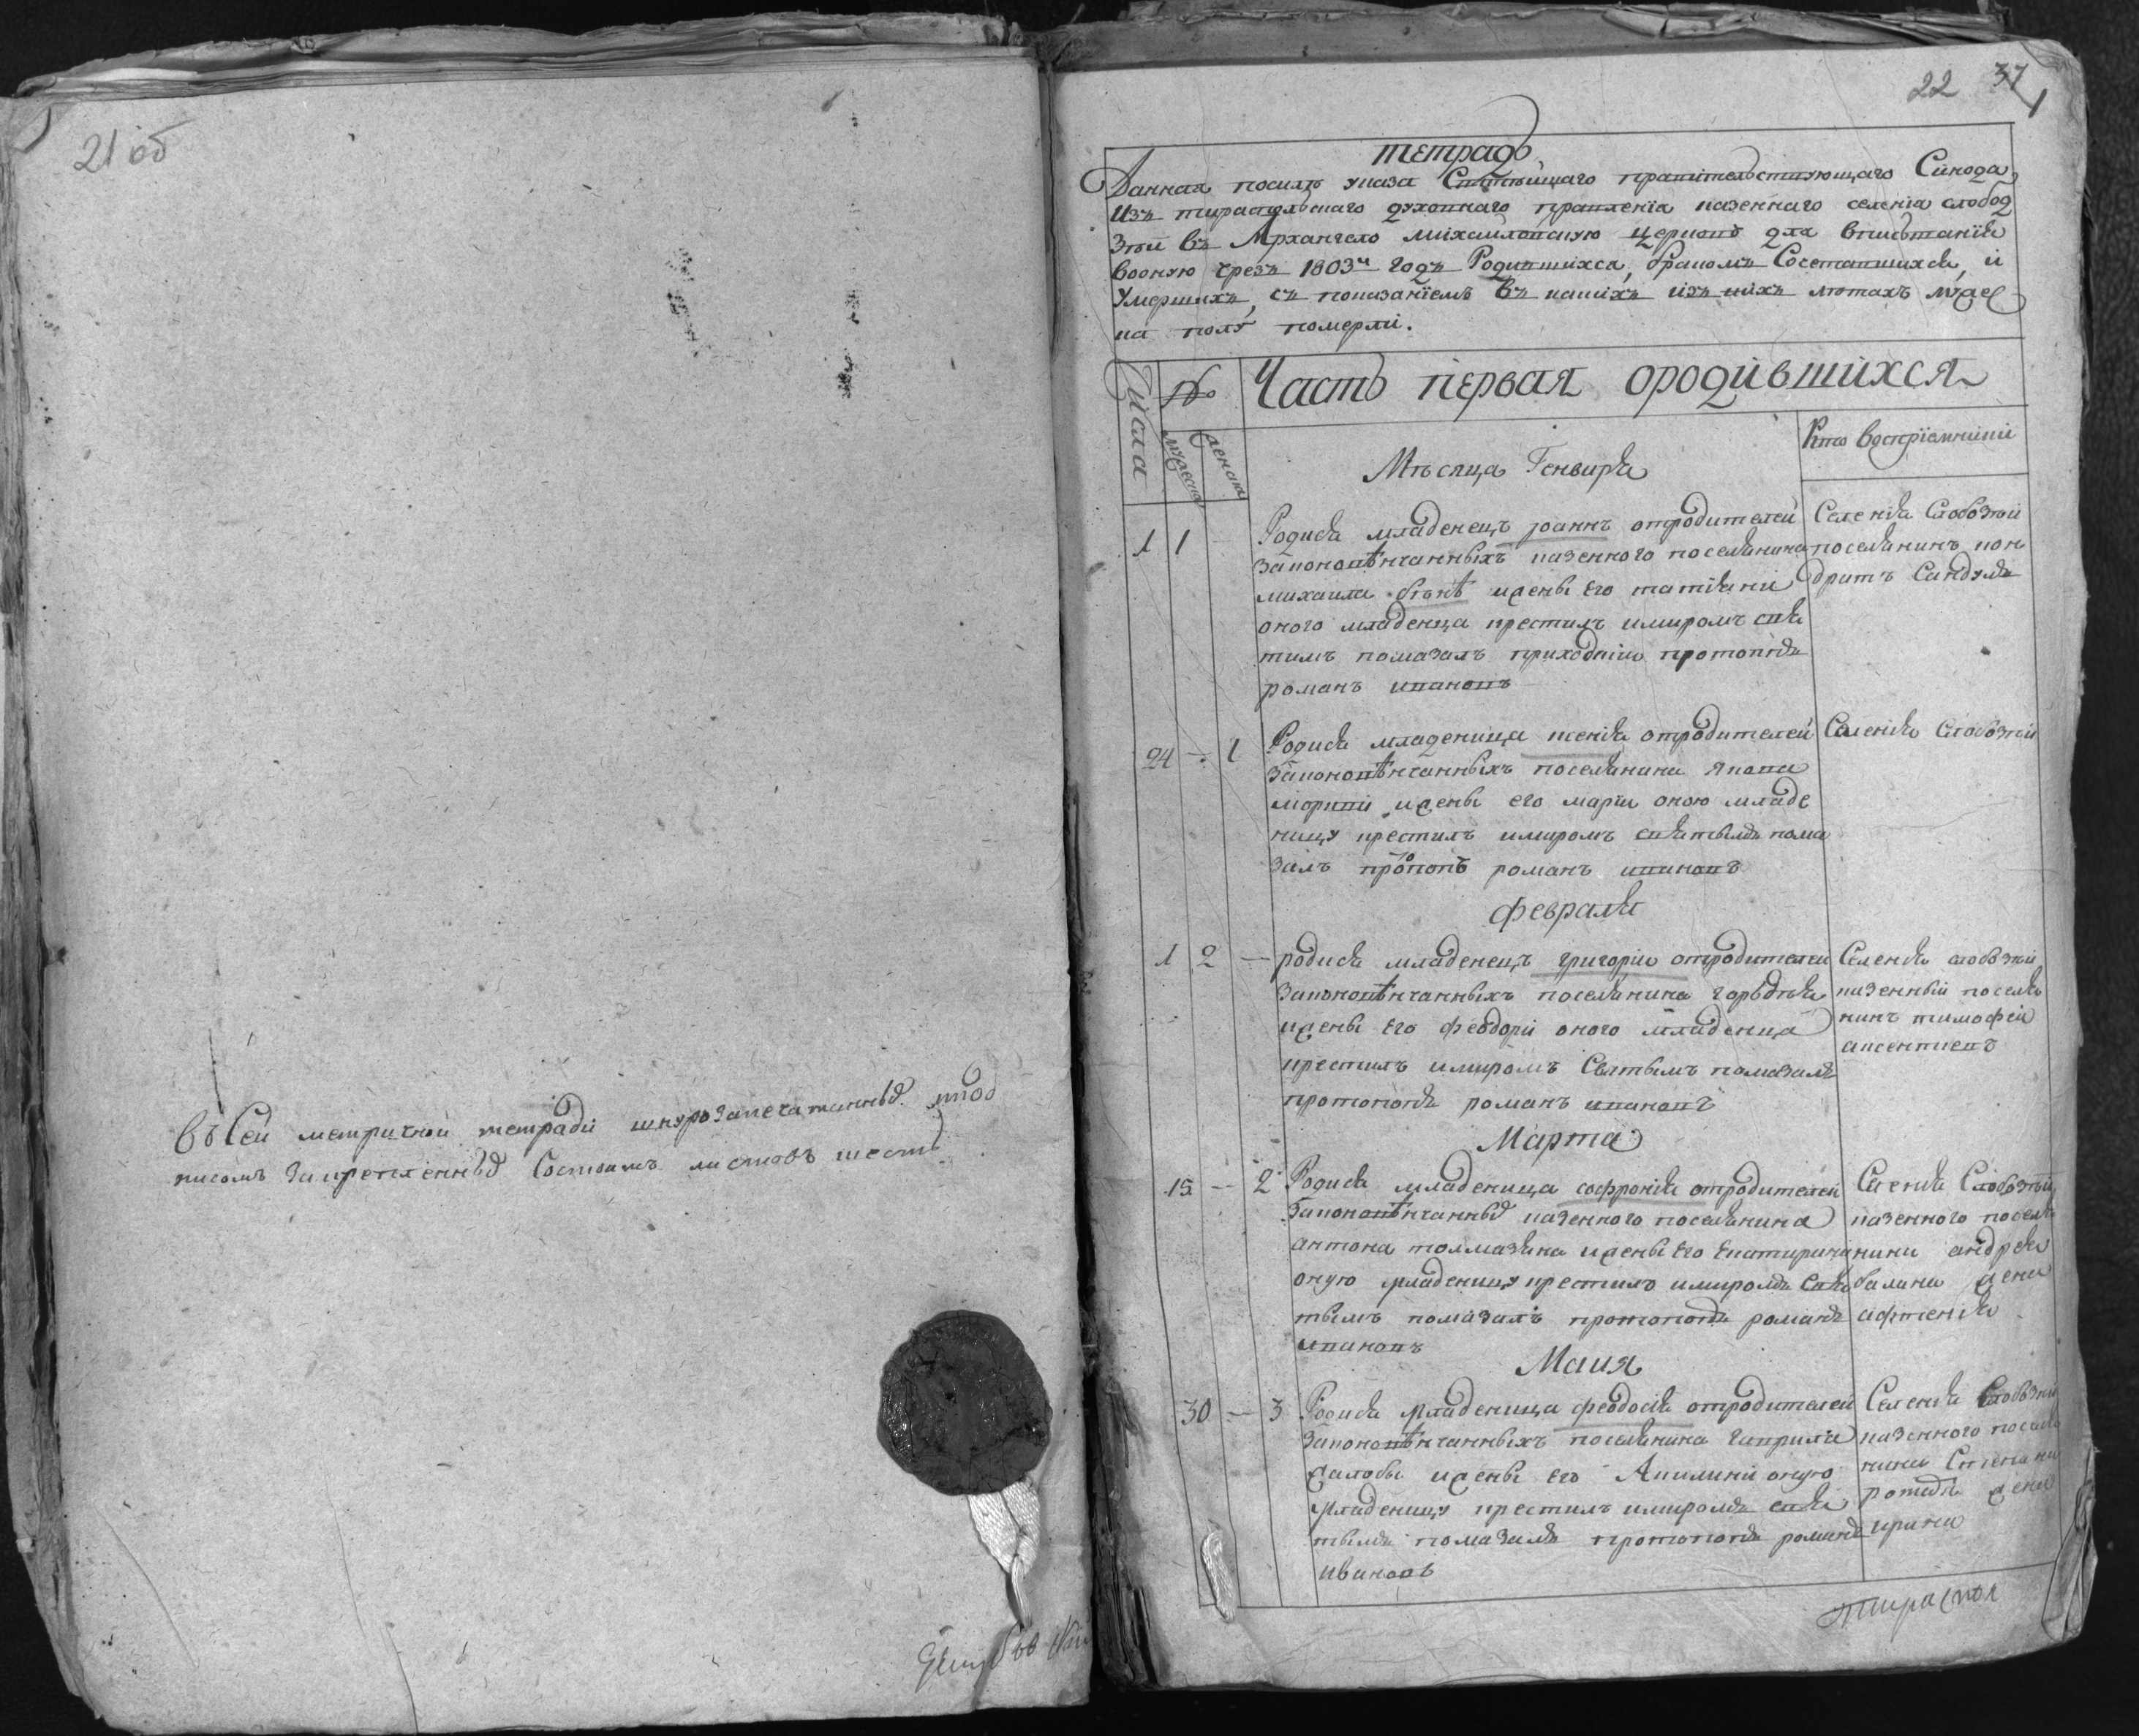 21 об
въ Сей метричной тетради шнурозапечатанныа
писомъ закрепленныа Состоитъ листовъ шесть
22 37
тетрадь
Данная посилѣ указа Святѣйшаго правительствующаго Сѵнода
Изъ тираспольскаго духовнаго правленія казеннаго селенія слобод
зѣи въ Архангело михаиловскую церковь для вписыванія
вооную чрезъ 1803й годъ Родившихся, бракомъ Сочетавшихся, и
Умершихъ, съ показаніемъ въ какихъ изъ нихъ лѣтахъ мужес
ка полу померли.
Числа
№
мужеска
женска
Часть первая ородившихся
Кто воспріемники
Мѣсяца Генваря
1 1
Родися младенецъ іоаннъ отродителей
законовѣнчанныхъ казенного поселянина
михаила бѣкѣ ижены его татіани
оного младенца крестилъ имиромъ свя
тимъ помазалъ приходскій протопопъ
романъ ивановъ
Селенія Слобозѣи
поселянинъ кон
дратъ Сандулъ
24 1
Родися младеница ксенія отродителей
законовѣнчанныхъ поселянина якова
ижены его маріи оною младе
ницу крестилъ имиромъ святымъ пома
залъ протопопъ романъ ивановъ
Селенія Слобозѣи
февраля
1 2
родися младенецъ григорій отродителей
законовѣнчанныхъ поселянина
ижены его феодори оного младенца
крестилъ имиромъ Святымъ помазалъ
протопопъ романъ ивановъ
Селенія слобозѣи
казенный поселя
нинъ тимофей
аксентиевъ
Марта
15 2
Родися младеница софронія отродителей
законовѣнчанныа казенного поселянина
антона толмазана ижены его екатирини
оную младеницу крестилъ имиромъ свя
тымъ помазалъ протопопъ романъ
ивановъ
Селенія Слобозѣи
казенного поселя
нина андрея
балана жена
афтенія
Маия
30 3
Родися младеница феодосія отродителей
законовѣнчанныхъ поселянина гаврила
жалобы ижены его Акилини оную
младеницу крестилъ имиромъ свя
тымъ помазалъ протопопъ романъ
ивановъ
Селенія Слобозѣи
казенного поселя
нина Стефана
ротаря жена
ирина
тираспол